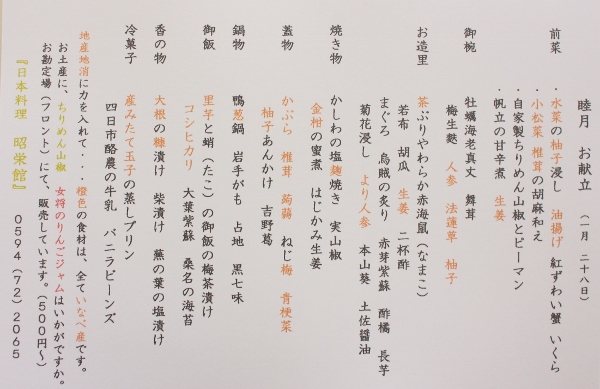 睦月 お献立 (一月 二十八日)
前菜 ・水菜の柚子浸し 油揚げ 紅ずわい蟹 いくら
・小松菜 椎茸の胡麻和え
・自家製ちりめん山椒とピーマン
・帆立の甘辛煮 生姜
御椀 牡蠣海老真丈 舞茸
梅生麩 人参 法蓮草 柚子
お造里 茶ぶりやわらか赤海鼠(なまこ)
若布 胡瓜 生姜 二杯酢
まぐろ 烏賊の炙り 赤芽紫蘇 酢橘 長芋
菊花浸し より人参 本山葵 土佐醤油
焼き物 かしわの塩麹焼き 実山椒
金柑の蜜煮 はじかみ生姜
蓋物 かぶら 椎茸 蒟蒻 ねじ梅 青梗菜
柚子あんかけ 吉野葛
鍋物 鴨葱鍋 岩手がも 占地 黒七味
御飯 里芋と蛸(たこ)の御飯の梅茶漬け
コシヒカリ 大葉紫蘇 桑名の海苔
香の物 大根の糠漬け 柴漬け 蕪の葉の塩漬け
冷菓子 産みたて玉子の蒸しプリン
四日市酪農の牛乳 バニラビーンズ
地産地消に力を入れて・・・橙色の食材は、全ていなべ産です。
お土産に、ちりめん山椒 女将のりんごジャムはいかがですか。
お勘定場(フロント)にて、販売しています。(500円~)
『日本料理 昭栄館』 0594(72)2065